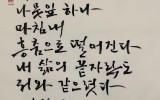 나뭇잎 하나
마침내
흔들으로 떨어진다
내 삶의 끝자락도
저와 같으렷다